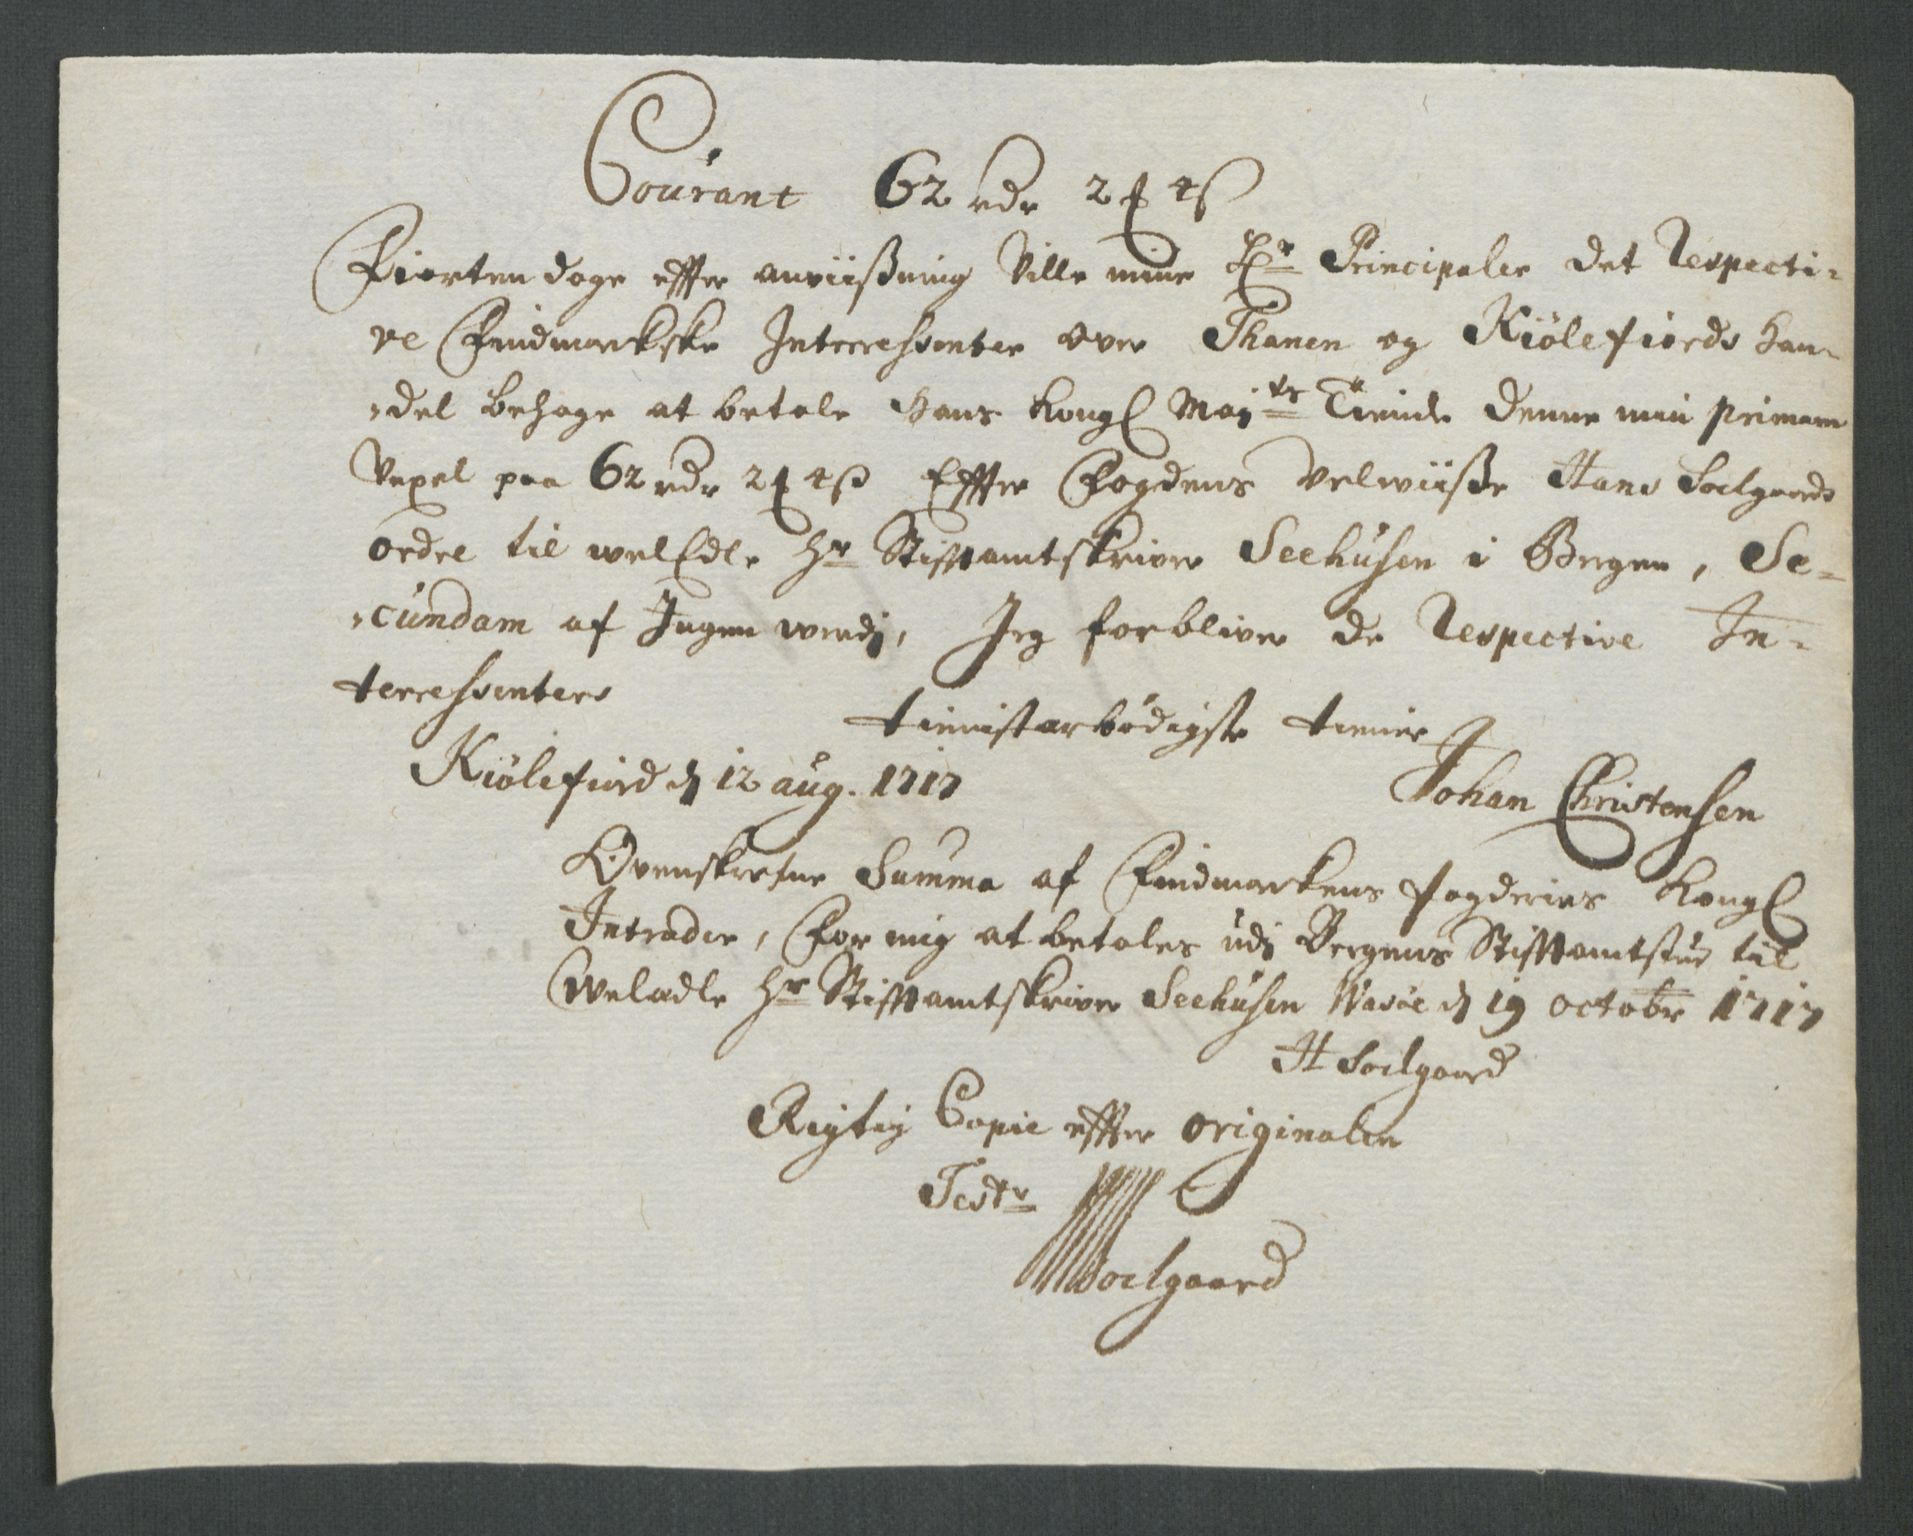 Courant 62 rdr 2 ₰ 4 ß
Fiorten dage effter anviißning Ville mine Hr Principaler det Respecti-
ve Findmarkske Interressenter over Thanen og Kiölefiords Han-
del behage at betale Hans Kongl Maj ts Tiende denne min primam
Vexel paa 62 rdr 2 ₰ 4 ß Effter Fogdens velwiiße Hans Soelgaards
ordre til welEdle Hr Stifftamtskriver Seehusen i Bergen, Se-
cundam af Ingen werdj, Jeg forbliver de Respective In-
terressenters
tienistarbödigste tienner
Kiölefiord d 12 aug. 1717
Johan Christensen
Ovenskrefne Summa af Findmarkens fogderies Kongl
Intrader, for mig at betales udj Bergens Stifftamtstue til
Weladle Hr Stifftamtskriver Seehusen Wasöe d 19 octobr 1717
H Soelgaard
Rigtig Copie effter originalen
Testr
HSoelgaard